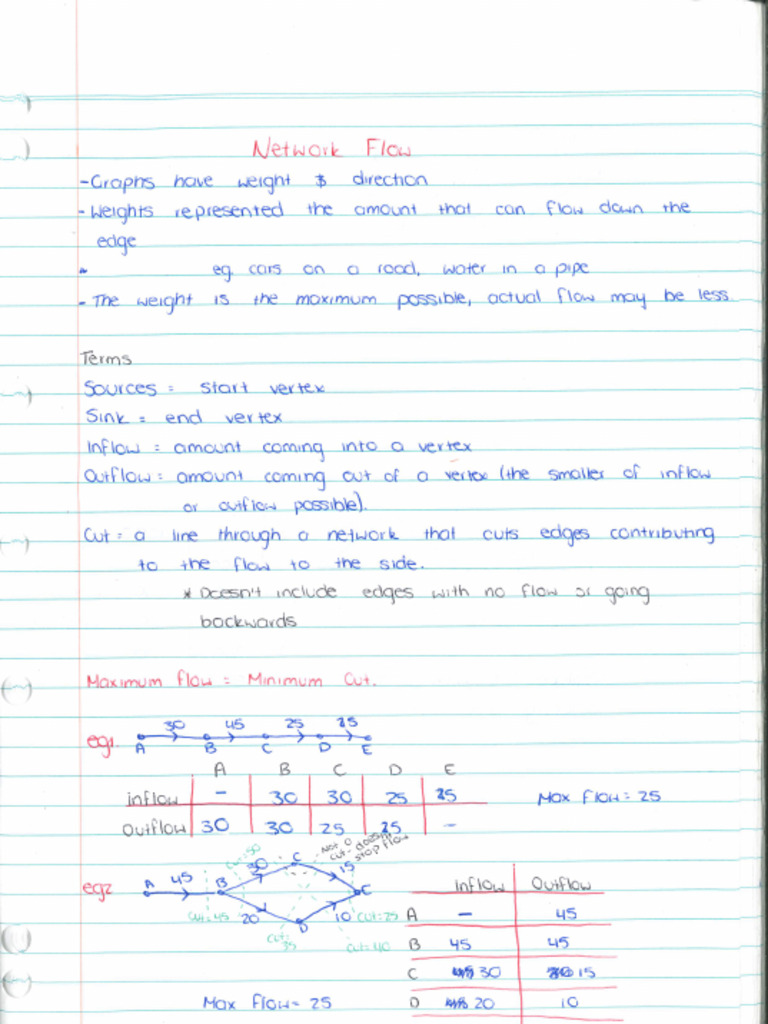 Network Flow
- Graphs have weight & direction
- Weights represented the amount that can flow down the
edge
- eg cars on a road, water in a pipe
- The weight is the maximum possible, actual flow may be less
Terms
Sources = start vertex
Sink = end vertex
Inflow = amount coming into a vertex
Outflow = amount coming out of a vertex (the smaller of inflow
or outflow possible).
Cut = a line through a network that cuts edges contributing
to the flow to the side.
* Doesn't include edges with no flow or going
backwards
Maximum flow = Minimum Cut.
eg1. 30 45 25
A B C D E
A B C D E
inflow - 30 30 25
Outflow 30 30 25 -
Max Flow = 25
eg2 A 45 B 30 C 15 C
20 D 10
Cut=50
Not a cut - doesn't stop flow
Cut=45
Cut=35
Cut=25
Cut=40
Inflow Outflow
A - 45
B 45 45
C 30 15
D 20 10
Max Flow = 25